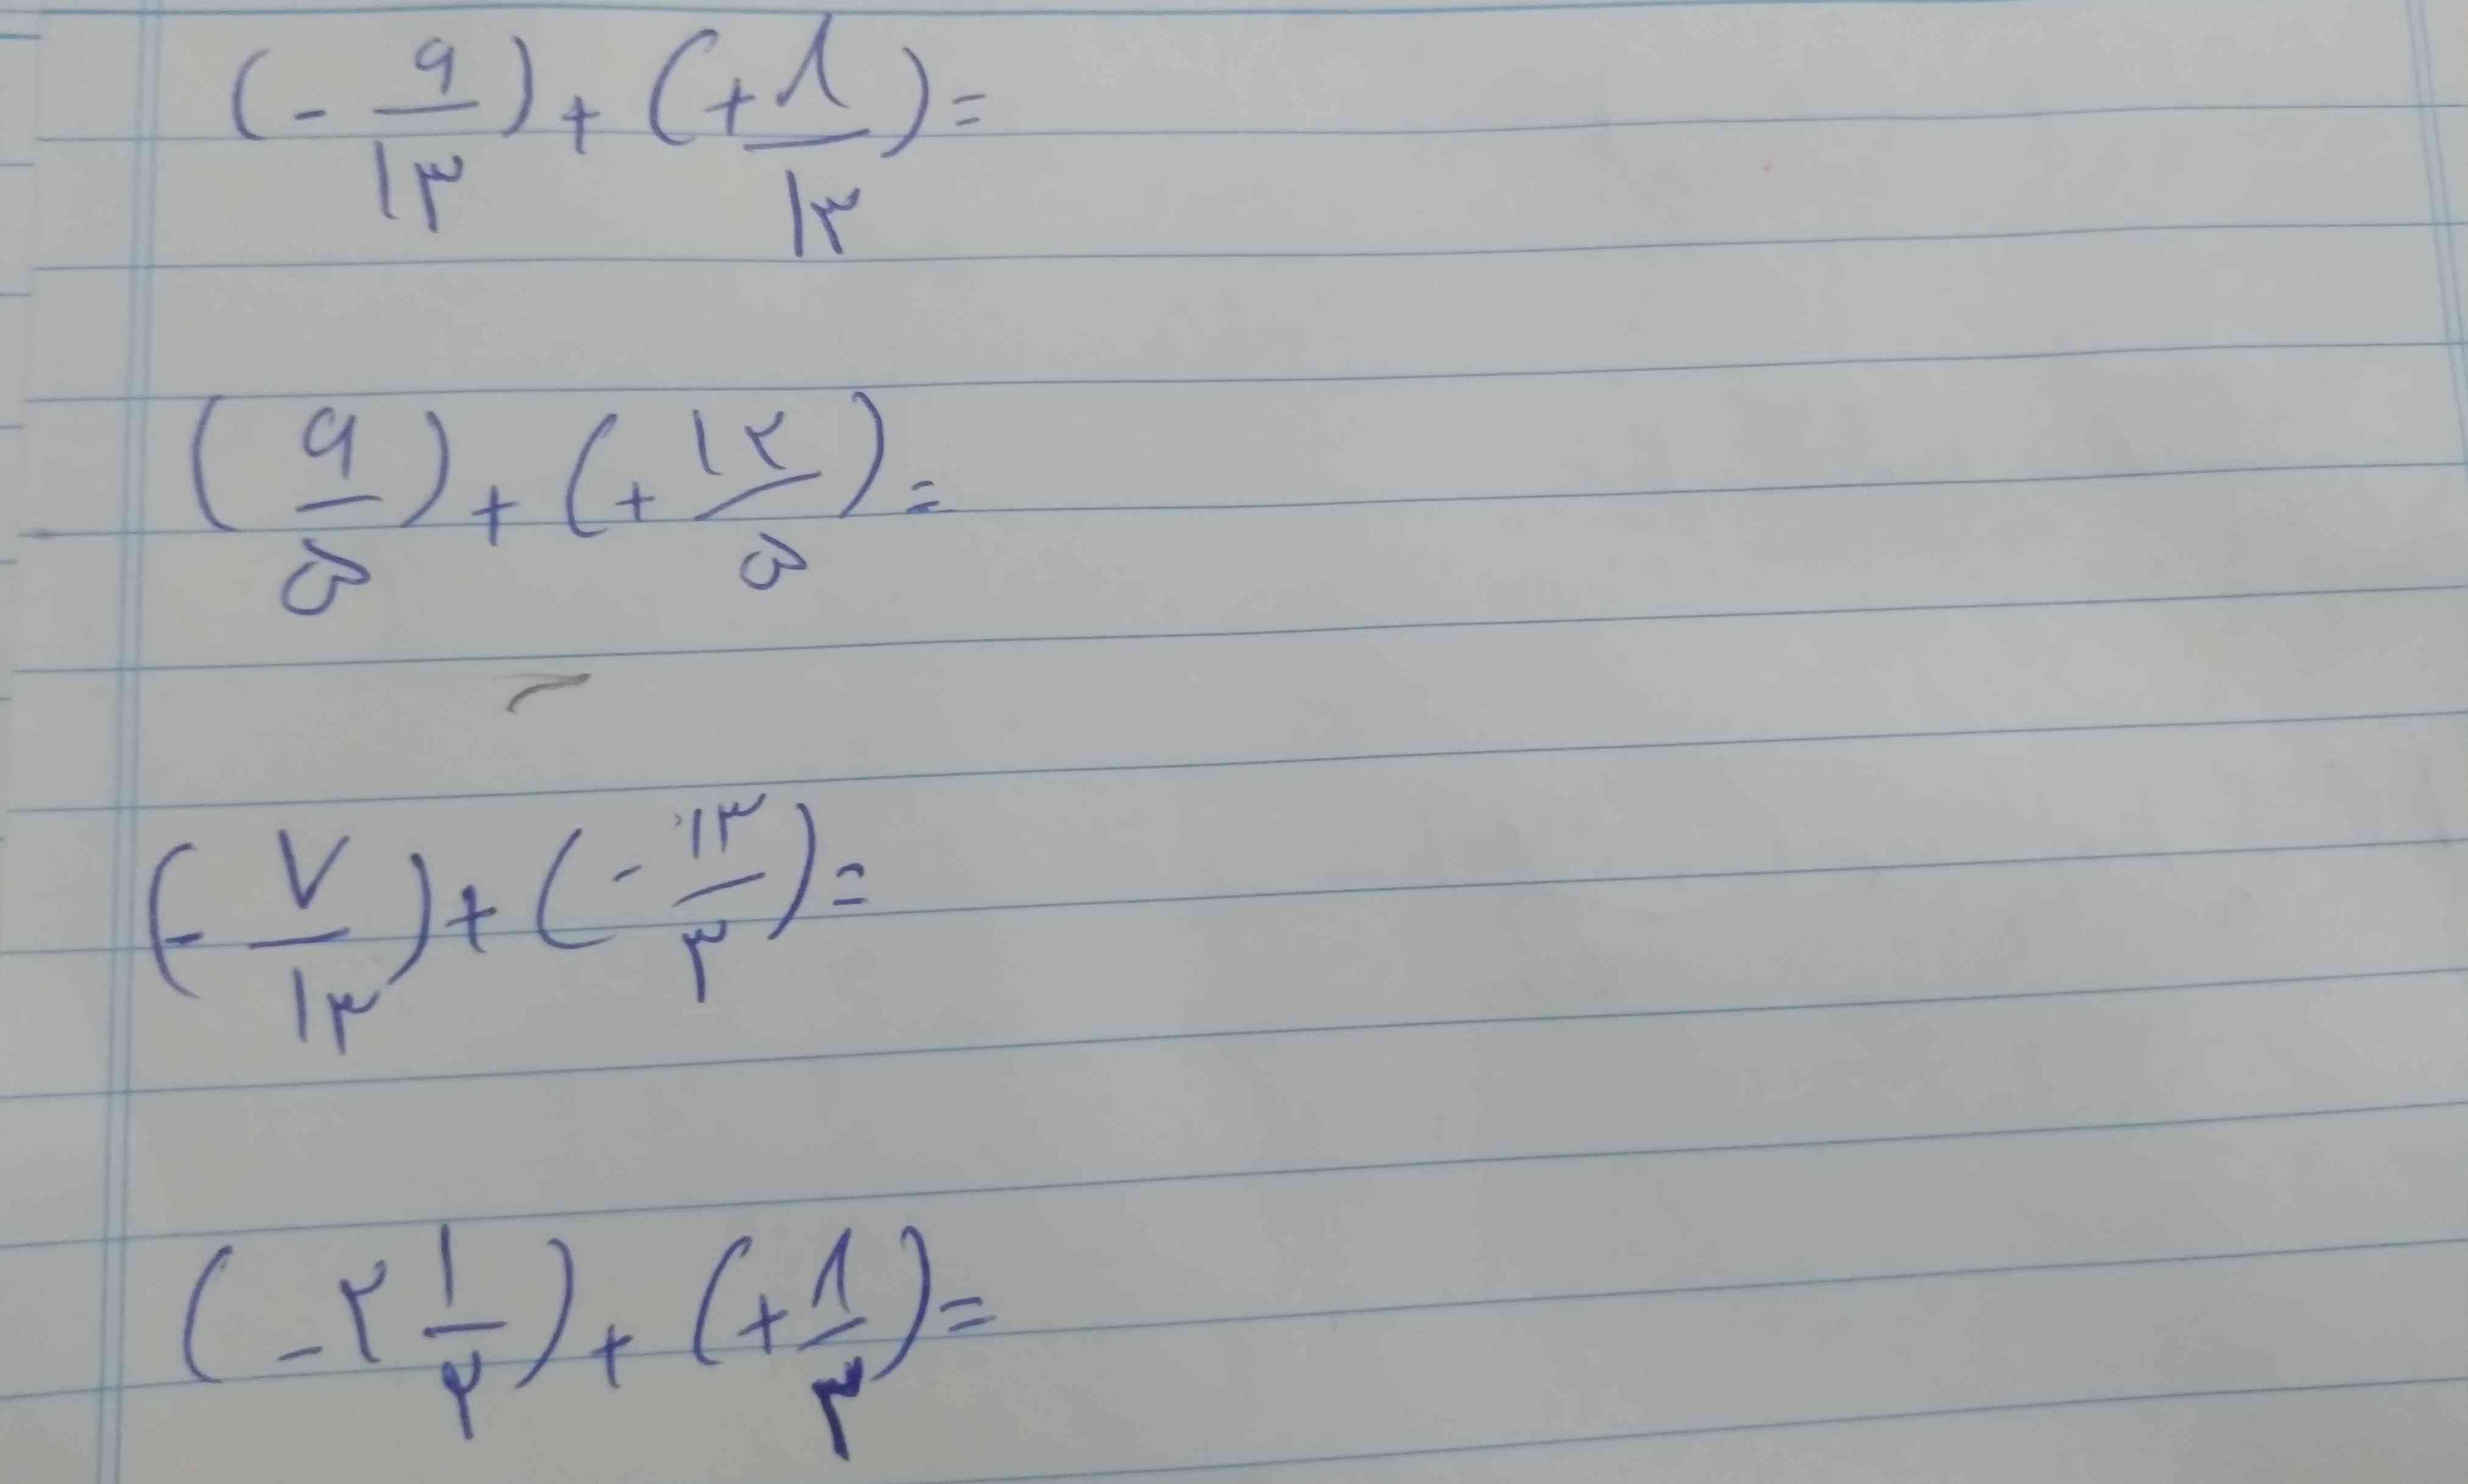 (- ۹/۱۳) + (+ ۸/۱۳) =
(۹/۵) + (+ ۱۲/۵) =
(- ۷/۱۳) + (- ۱۳/۳) =
(- ۲ ۱/۲) + (+ ۸/۳) =